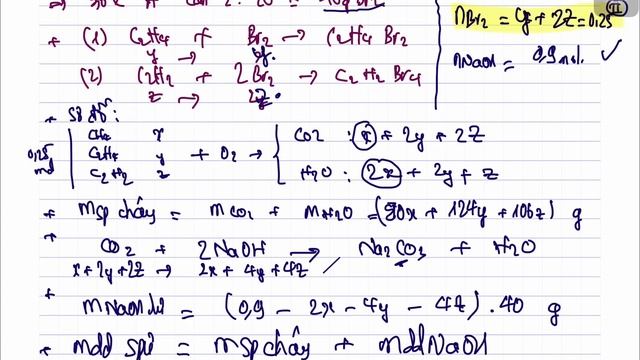 + (1) C2H4 + Br2 → C2H4 Br2
y → y.
(2) C2H2 + 2Br2 → C2H2 Br4
z → 2z.
nBr2 = y + 2z = 0,25
nNaOH = 0,9 mol. ✓
+ Sơ đồ:
0,25 mol
CH4 x
C2H4 y + O2 →
C2H2 z
CO2 : x + 2y + 2z
H2O : 2x + 2y + z
+ msp cháy = mCO2 + mH2O = (80x + 124y + 106z) g
+ CO2 + 2NaOH → Na2CO3 + H2O
x + 2y + 2z → 2x + 4y + 4z
+ mNaOH dư = (0,9 - 2x - 4y - 4z) . 40 g
+ mdd spứ = msp cháy + mdd NaOH